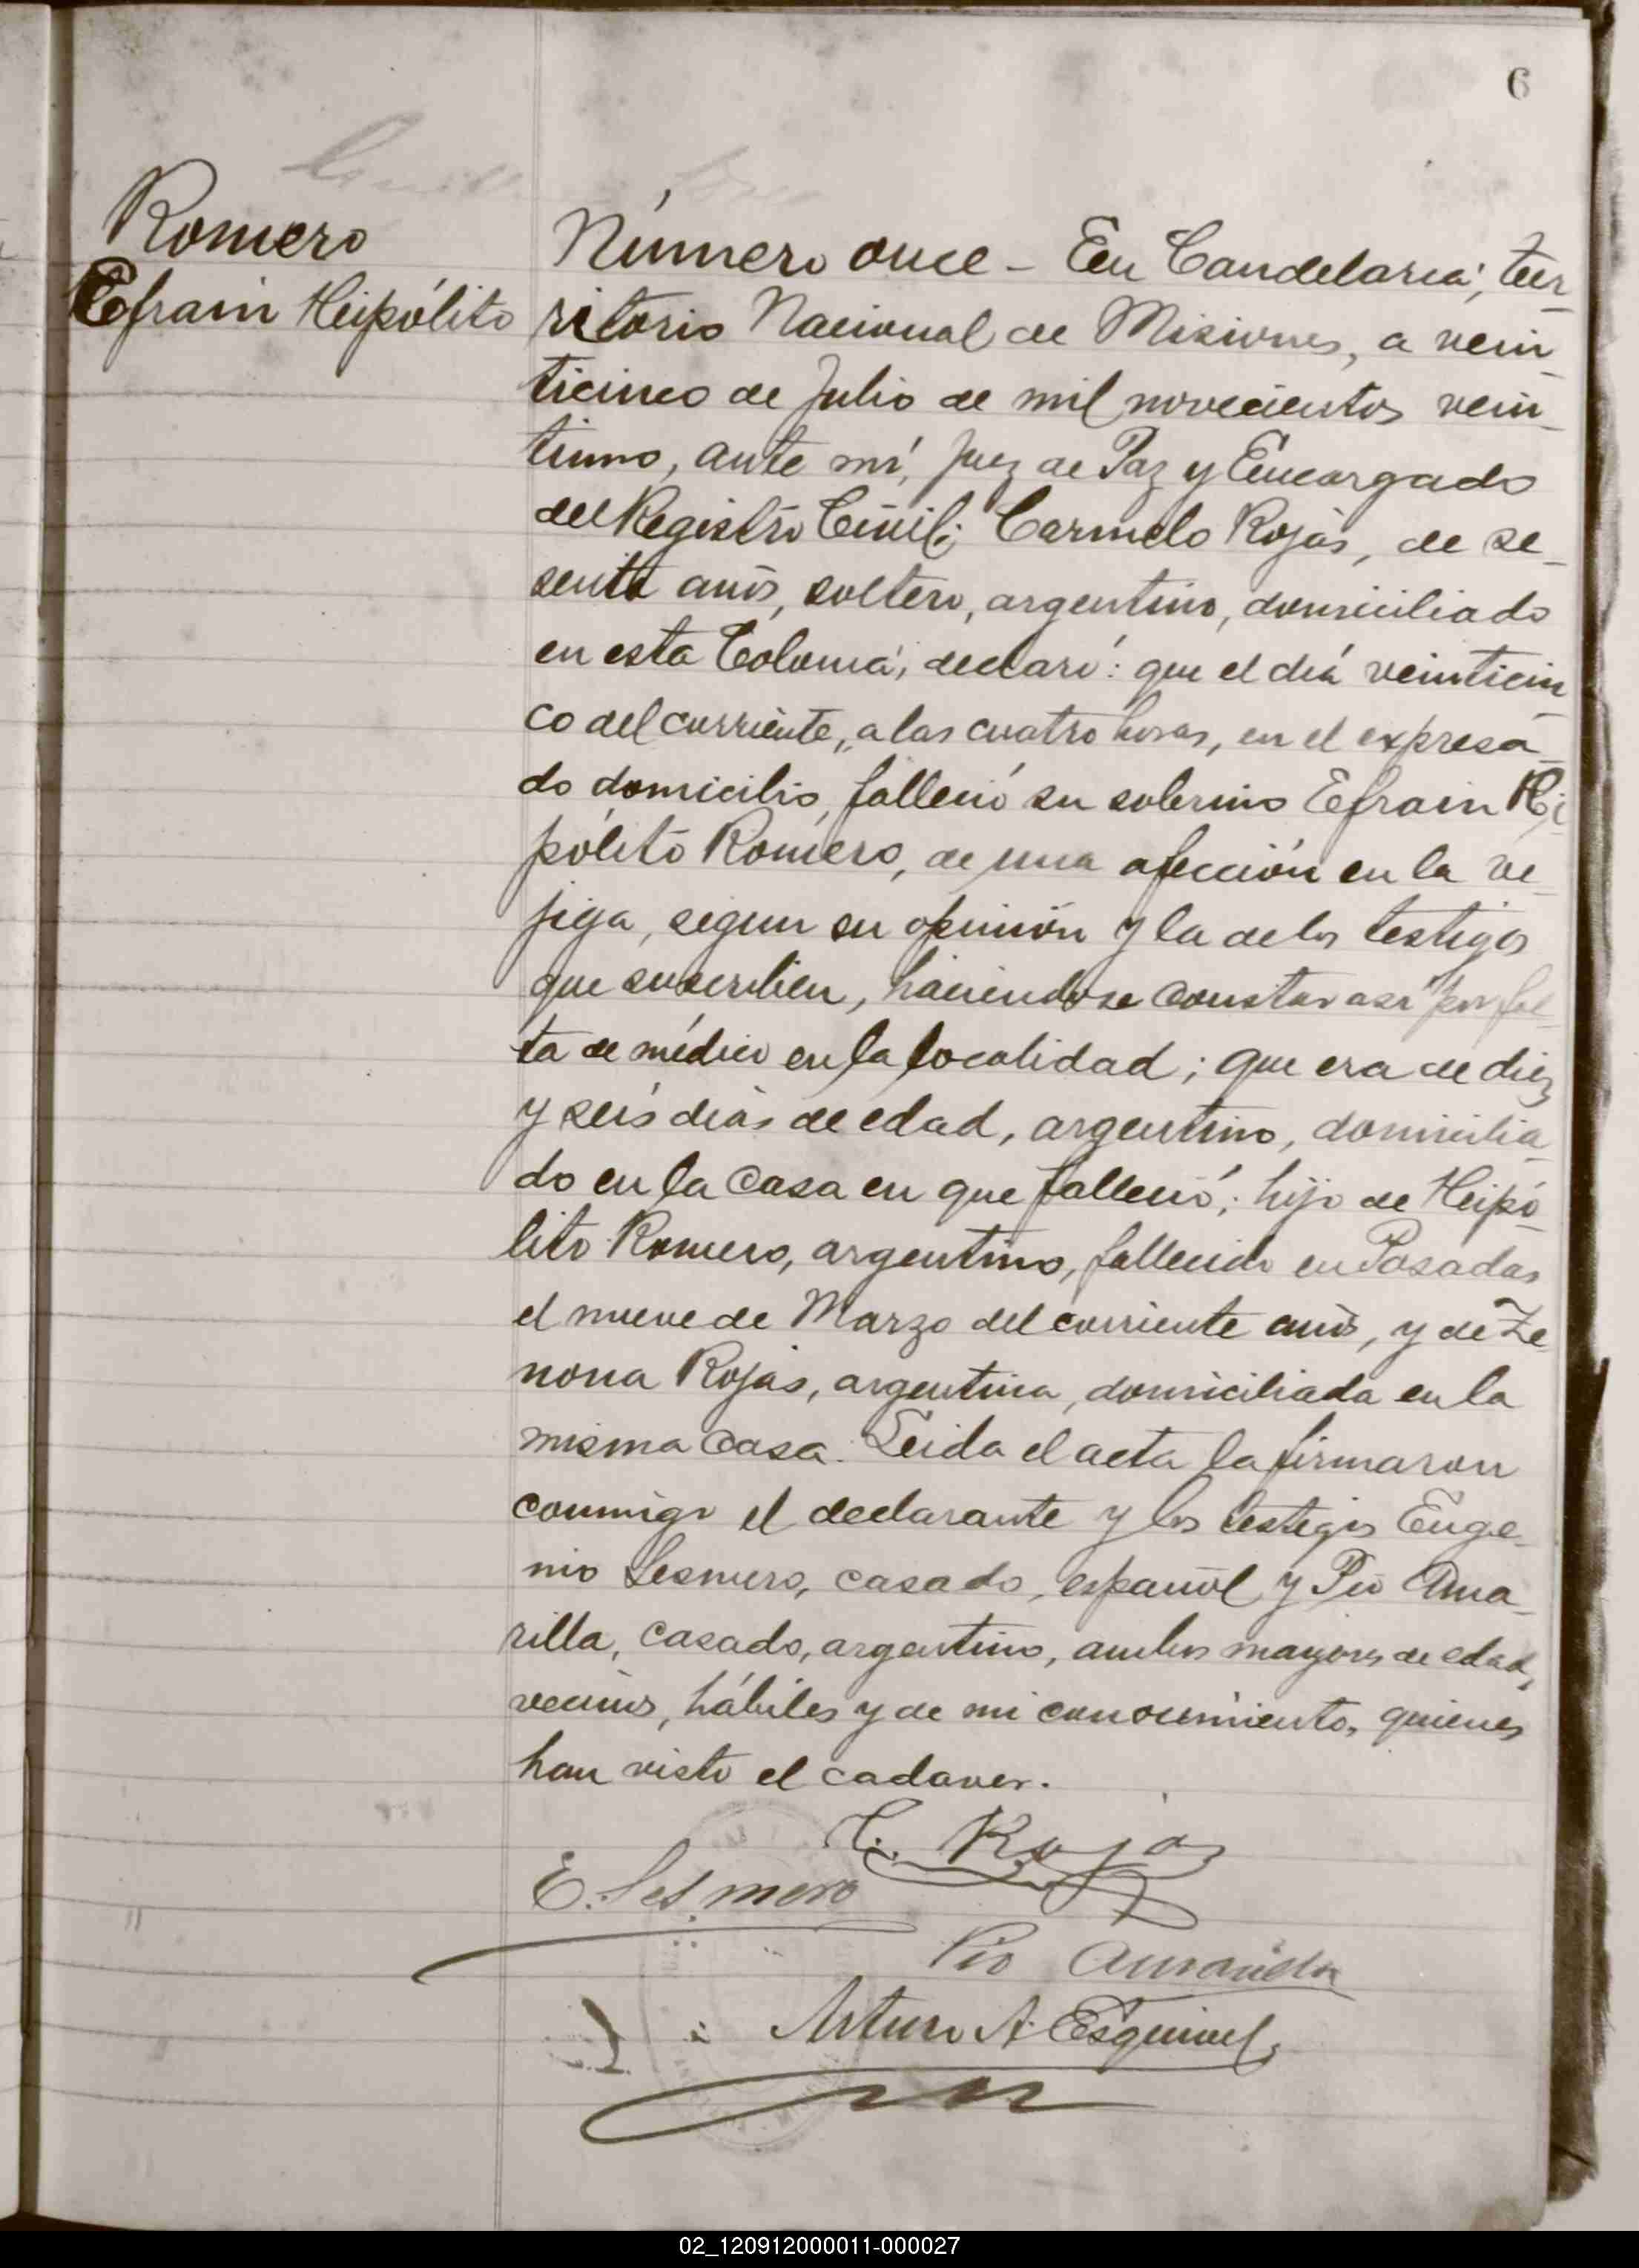 6
Romero
Efrain Heipólito
Número once - En Candelaria, ter-
ritorio Nacional de Misiones, a vein-
ticinco de Julio de mil novecientos vein-
tiuno, ante mí, Juez de Paz y Encargado
del Registro Civil; Carmelo Rojas, de se-
senta años, soltero, argentino, domiciliado
en esta Colonia, declaró: que el día veinticin-
co del corriente, a las cuatro horas, en el expresa-
do domicilio, falleció su sobrino Efrain Hi-
pólito Romero, de una afección en la ve-
jiga, segun su opinión y la de los testigos
que suscriben, haciendose constar así por fal-
ta de médico en la localidad; que era de diez
y seis días de edad, argentino, domicilia-
do en la casa en que falleció; hijo de Heipó-
lito Romero, argentino, fallecido en Posadas
el nueve de Marzo del corriente año, y de Ze-
nona Rojas, argentina, domiciliada en la
misma casa. Leida el acta la firmaron
conmigo el declarante y los testigos Euge-
nio Lesmero, casado, español y Pio Ama-
rilla, casado, argentino, ambos mayores de edad,
vecinos, hábiles y de mi conocimiento, quienes
han visto el cadaver.
C. Rojas
E. Lesmero
Pio Amarilla
Arturo A. Esquivel
02_120912000011-000027